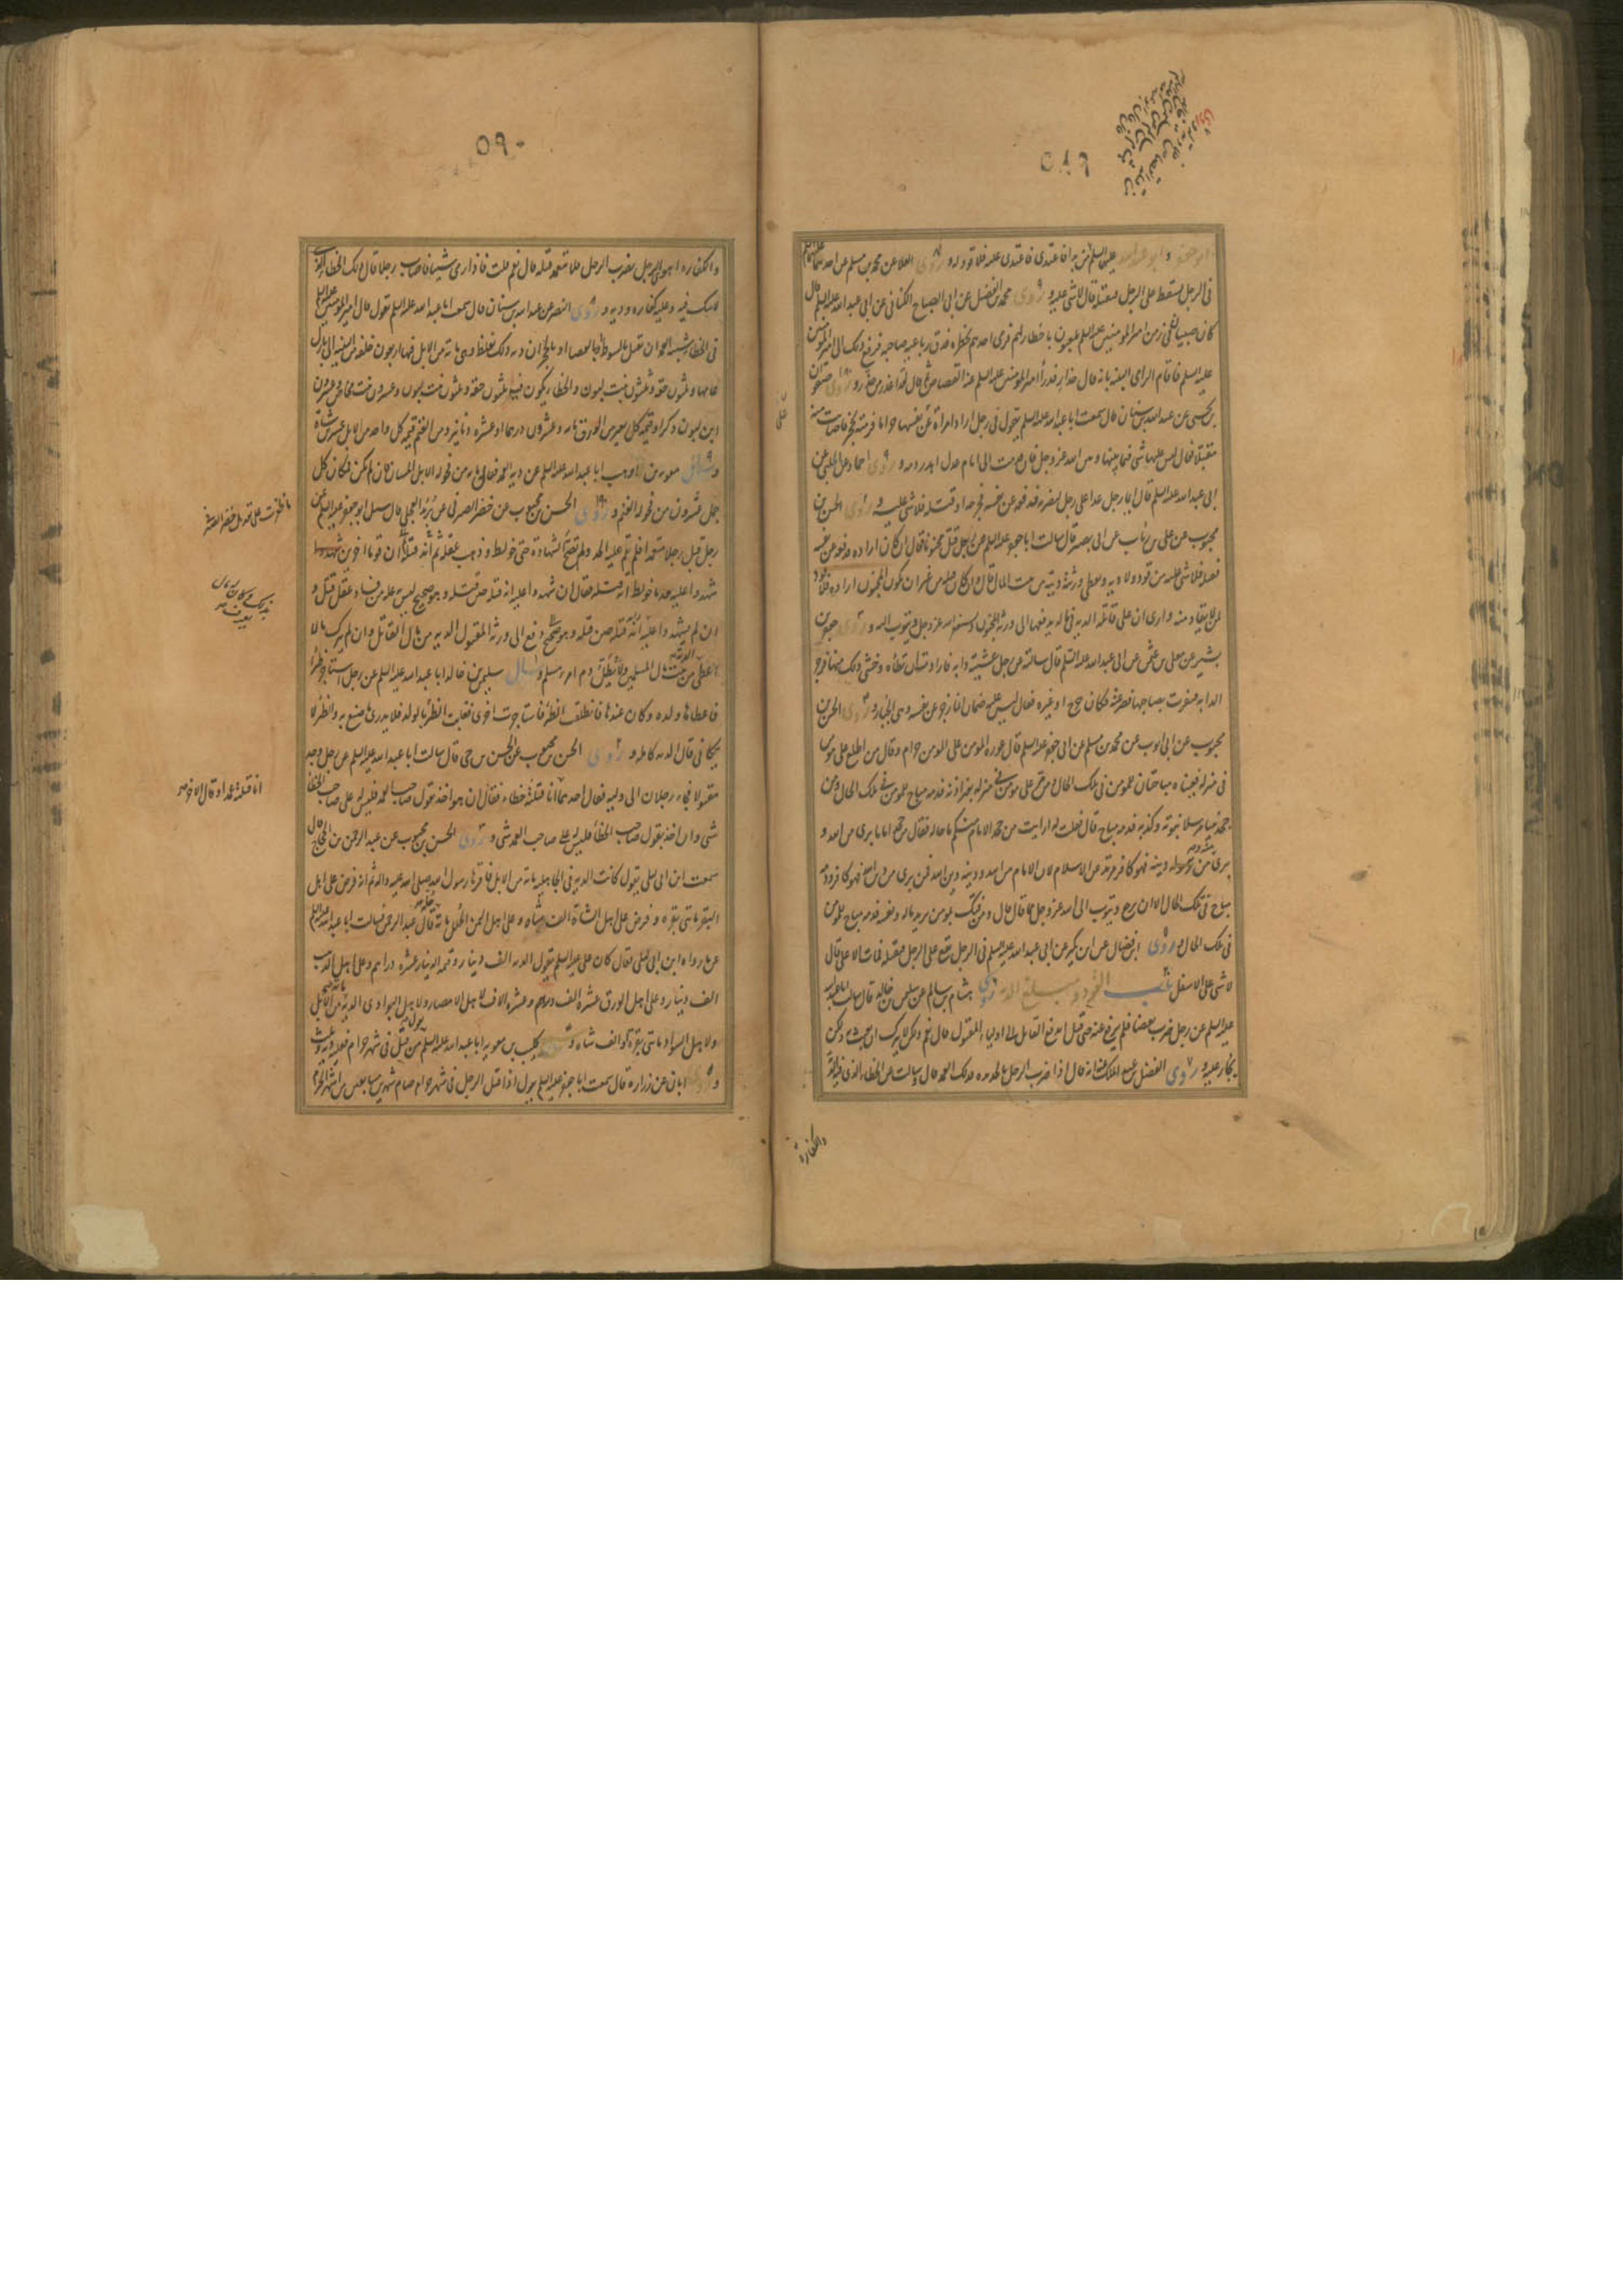 ٥٨٩
ابو جعفر و ابو عبد الله عليهما السلم من بدا فاعتدى فاعتدى عليه فلا قود له و روى العلا عن محمد بن مسلم عن احدهما عليهما السلام
فى الرجل يسقط على الرجل فيقتله قال لا شى عليه و روى محمد بن الفضيل عن ابى الصباح الكنانى عن ابى عبد الله عليه السلم قال
كان صبيان فى زمن امير المومنين عليه السلم يلعبون باخطار لهم فرمى احدهم بخطره فدق رباعية صاحبه فرفع ذلك الى امير المومنين
عليه السلم فاقام الرامى البينة بانه قال حذار فدرأ امير المومنين عليه السلم عنه القصاص ثم قال قد اعذر من حذر و روى صفوان
بن يحيى عن عبد الله بن سنان قال سمعت ابا عبد الله عليه السلم يقول فى رجل اراد امرأة عن نفسها حراما فرمته بحجر فاصابت منه
مقتلا فقال ليس عليها شى فيما بينها و بين الله عز و جل فان قدمت الى امام عدل اهدر دمه و روى حماد عن الحلبى عن
ابى عبد الله عليه السلم قال ايما رجل عدا على رجل ليضربه فدفعه عن نفسه فجرحه او قتله فلا شى عليه و روى الحسن بن
محبوب عن على بن رئاب عن ابى بصير قال سالت ابا جعفر عليه السلم عن رجل قتل مجنونا فقال ان كان اراده فدفعه عن نفسه
فقتله فلا شى عليه من قود ولا دية و يعطى ورثته ديته من بيت المال قال وان كان قتله من غير ان يكون المجنون اراده فلا قود
لمن لا يقاد منه و ارى ان على قاتله الدية فى ماله يدفعها الى ورثة المجنون و يستغفر الله عز و جل و يتوب اليه و روى جعفر بن
بشير عن معلى بن عثمن عن ابى عبد الله عليه السلم قال سالته عن رجل غشيته دابة فارادت ان تطأه و خشى ذلك منها فزجر
الدابة فنفرت بصاحبها فصرعته فكان جرح او غيره فقال ليس عليه ضمان انما زجر عن نفسه و هى الجبار و روى الحسن بن
محبوب عن ابى ايوب عن محمد بن مسلم عن ابى جعفر عليه السلم قال عورة المومن على المومن حرام و قال من اطلع على مومن
فى منزله فعيناه مباحتان للمومن فى تلك الحال و من دمر على مومن فى منزله بغير اذنه فدمه مباح للمومن فى تلك الحال و من
جحد نبيا مرسلا نبوته و كذبه فدمه مباح قال فقلت له ارايت من جحد الامام منكم ما حاله فقال من جحد اماما برى من الله و
برى منه و من دينه فهو كافر مرتد عن الاسلام لان الامام من الله و دينه دين الله فمن برى من دين الله فهو كافر و دمه
مباح فى تلك الحال الا ان يرجع و يتوب الى الله عز و جل مما قال قال و من فتك بمومن يريد ماله و نفسه فدمه مباح للمومن
فى تلك الحال و روى ابن فضال عن ابن بكير عن ابى عبد الله عليه السلم فى الرجل يقع على الرجل فيقتله فمات الاعلى قال
لا شى على الاسفل باب القود و مبلغ الدية روى هشام بن سالم عن سليمن بن خالد قال سالت ابا عبد الله
عليه السلم عن رجل ضرب بعصا فلم يرفع عنه حتى قتل ايدفع القاتل الى اولياء المقتول قال نعم ولكن لا يترك ان يعبث به ولكن
يجاز عليه و روى الفضل بن عبد الملك عنه انه قال اذا ضرب الرجل بالحديدة فذلك العمد قال و سالته عن الخطاء الذى فيه الدية
والكفارة
٥٩٠
والكفارة اهو الرجل يضرب الرجل فلا يتعمد قتله قال نعم قلت فاذا رمى شيئا فاصاب رجلا قال ذلك الخطاء الذى
لا شك فيه و عليه كفارة و دية و روى النضر عن عبد الله بن سنان قال سمعت ابا عبد الله عليه السلم يقول قال امير المومنين عليه السلم
فى الخطاء شبه العمد ان تقتل بالسوط او بالعصا او بالحجارة ان دية ذلك تغلظ و هى مائة من الابل فيها اربعون خلفة بين ثنية الى بازل
عامها و ثلثون حقة و ثلثون بنت لبون و الخطاء يكون فيه ثلثون حقة و ثلثون بنت لبون و عشرون بنت مخاض و عشرون
ابن لبون ذكرا و قيمة كل بعير من الورق مائة و عشرون درهما او عشرة دنانير و من الغنم قيمة كل واحد من الابل عشرون شاة
و سال معوية بن وهب ابا عبد الله عليه السلم عن دية العمد فقال مائة من فحولة الابل المسان فان لم يكن فمكان كل
جمل عشرون من فحولة الغنم و روى الحسن بن محبوب عن خضر الصيرفى عن بريد العجلى قال سئل ابو جعفر عليه السلم عن
رجل قتل رجلا متعمدا فلم يقم عليه الحد ولم تصح الشهادة حتى خولط و ذهب عقله ثم ان قوما اخرين شهدوا
شهدوا عليه بعد ما خولط انه قتله فقال ان شهدوا عليه انه قتله حين قتله و هو صحيح ليس به علة من فساد عقل قتل و
ان لم يشهدوا عليه انه قتله حين قتله و هو صحيح دفع الى ورثة المقتول الدية من مال القاتل و ان لم يترك مالا
اعطى من بيت مال المسلمين ولا يطل دم امرء مسلم و سال سليمن بن خالد ابا عبد الله عليه السلم عن رجل استاجر ظئرا
فاعطاها ولده و كان عندها فانطلقت الظئر فاستاجرت اخرى فغابت الظئر بالولد فلا يدرى ما صنع به و الظئر لا
تكافى قال الدية كاملة و روى الحسن بن محبوب عن الحسن بن حى قال سالت ابا عبد الله عليه السلم عن رجل وجد
مقتولا فجاء رجلان الى وليه فقال احدهما انا قتلته خطاء فقال ان هو اخذ بقول صاحب العمد فليس له على صاحب الخطاء
شى و ان اخذ بقول صاحب الخطاء فليس له على صاحب العمد شى و روى الحسن بن محبوب عن عبد الرحمن بن الحجاج قال
سمعت ابن ابى ليلى يقول كانت الدية فى الجاهلية مائة من الابل فاقرها رسول الله صلى الله عليه واله ثم انه فرض على اهل
البقر مائتى بقرة و فرض على اهل الشاة الف شاة و على اهل اليمن الحلل مائة حلة قال عبد الرحمن فسالت ابا عبد الله عليه السلم
عما رواه ابن ابى ليلى فقال كان على عليه السلم يقول الدية الف دينار و قيمة الدينار عشرة دراهم و على اهل الذهب
الف دينار و على اهل الورق عشرة الف درهم و عشرة الاف لاهل الامصار و لاهل البوادى الدية مائة من الابل
و لاهل السواد مائتى بقرة او الف شاة و كليب بن معوية ابا عبد الله عليه السلم يقول من قتل فى شهر حرام فعليه دية و ثلث
و ابان عن زرارة قال سمعت ابا جعفر عليه السلم يقول اذا قتل الرجل فى شهر حرام صام شهرين متتابعين من اشهر الحرم
انا قتلته عمدا و قال الاخر